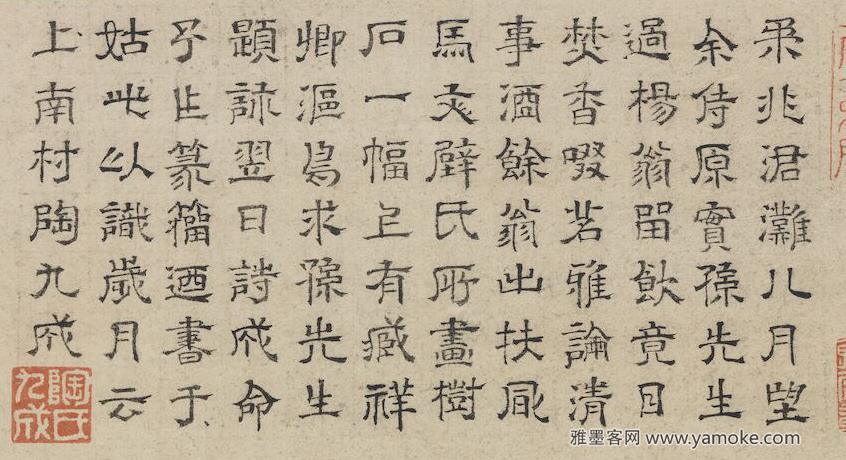 柔兆涒灘八月望
余侍原實孫先生
過楊翁留飲竟日
焚香啜茗雅論清
事酒餘翁出扶風
馬文璧氏所畫樹
石一幅上有臧祥
卿漚求孫先生
題詠翌日詩成命
予乍篆籀迺書于
姑此以識歲月云
上南村陶九成
陶氏九成
雅墨客网 www.yamoke.com